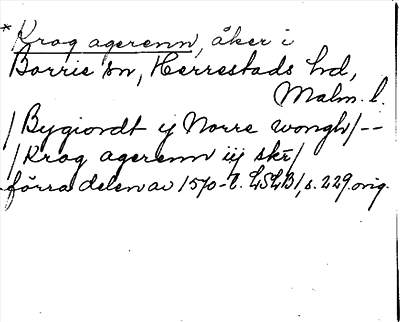 *Krog agerenn, åker i
Borrie sn, Herrestads hd,
Malm. l.
/Bygiondt ij Norre wongh/--
/Krog agerenn iij skr/
förra delen av 1570-t. LSLB1, s. 229. orig.